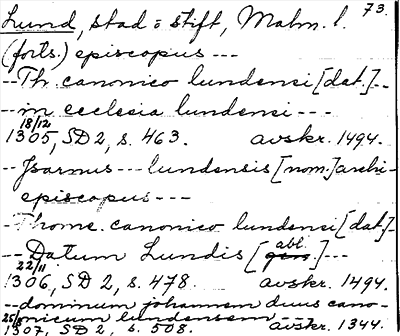 73.
Lund, stad o stift, Malm. l.
(forts.) episcopus ---
-- Th. canonico lundensi [dat.] --
-- in ecclesia lundensi ---
18/12
1305, SD 2, s. 463. avskr. 1494.
-- Isarnus --- lundensis [nom.] archi-
episcopus ---
- Thome. canonico lundensi [dat.] -
-- Datum Lundis [gen. abl.] ---
22/11
1306, SD 2, s. 478. avskr. 1494.
-- dominum johannem duus cano-
nicum lundensem ---
25/1
1307, SD 2, s. 508. avskr. 1344.